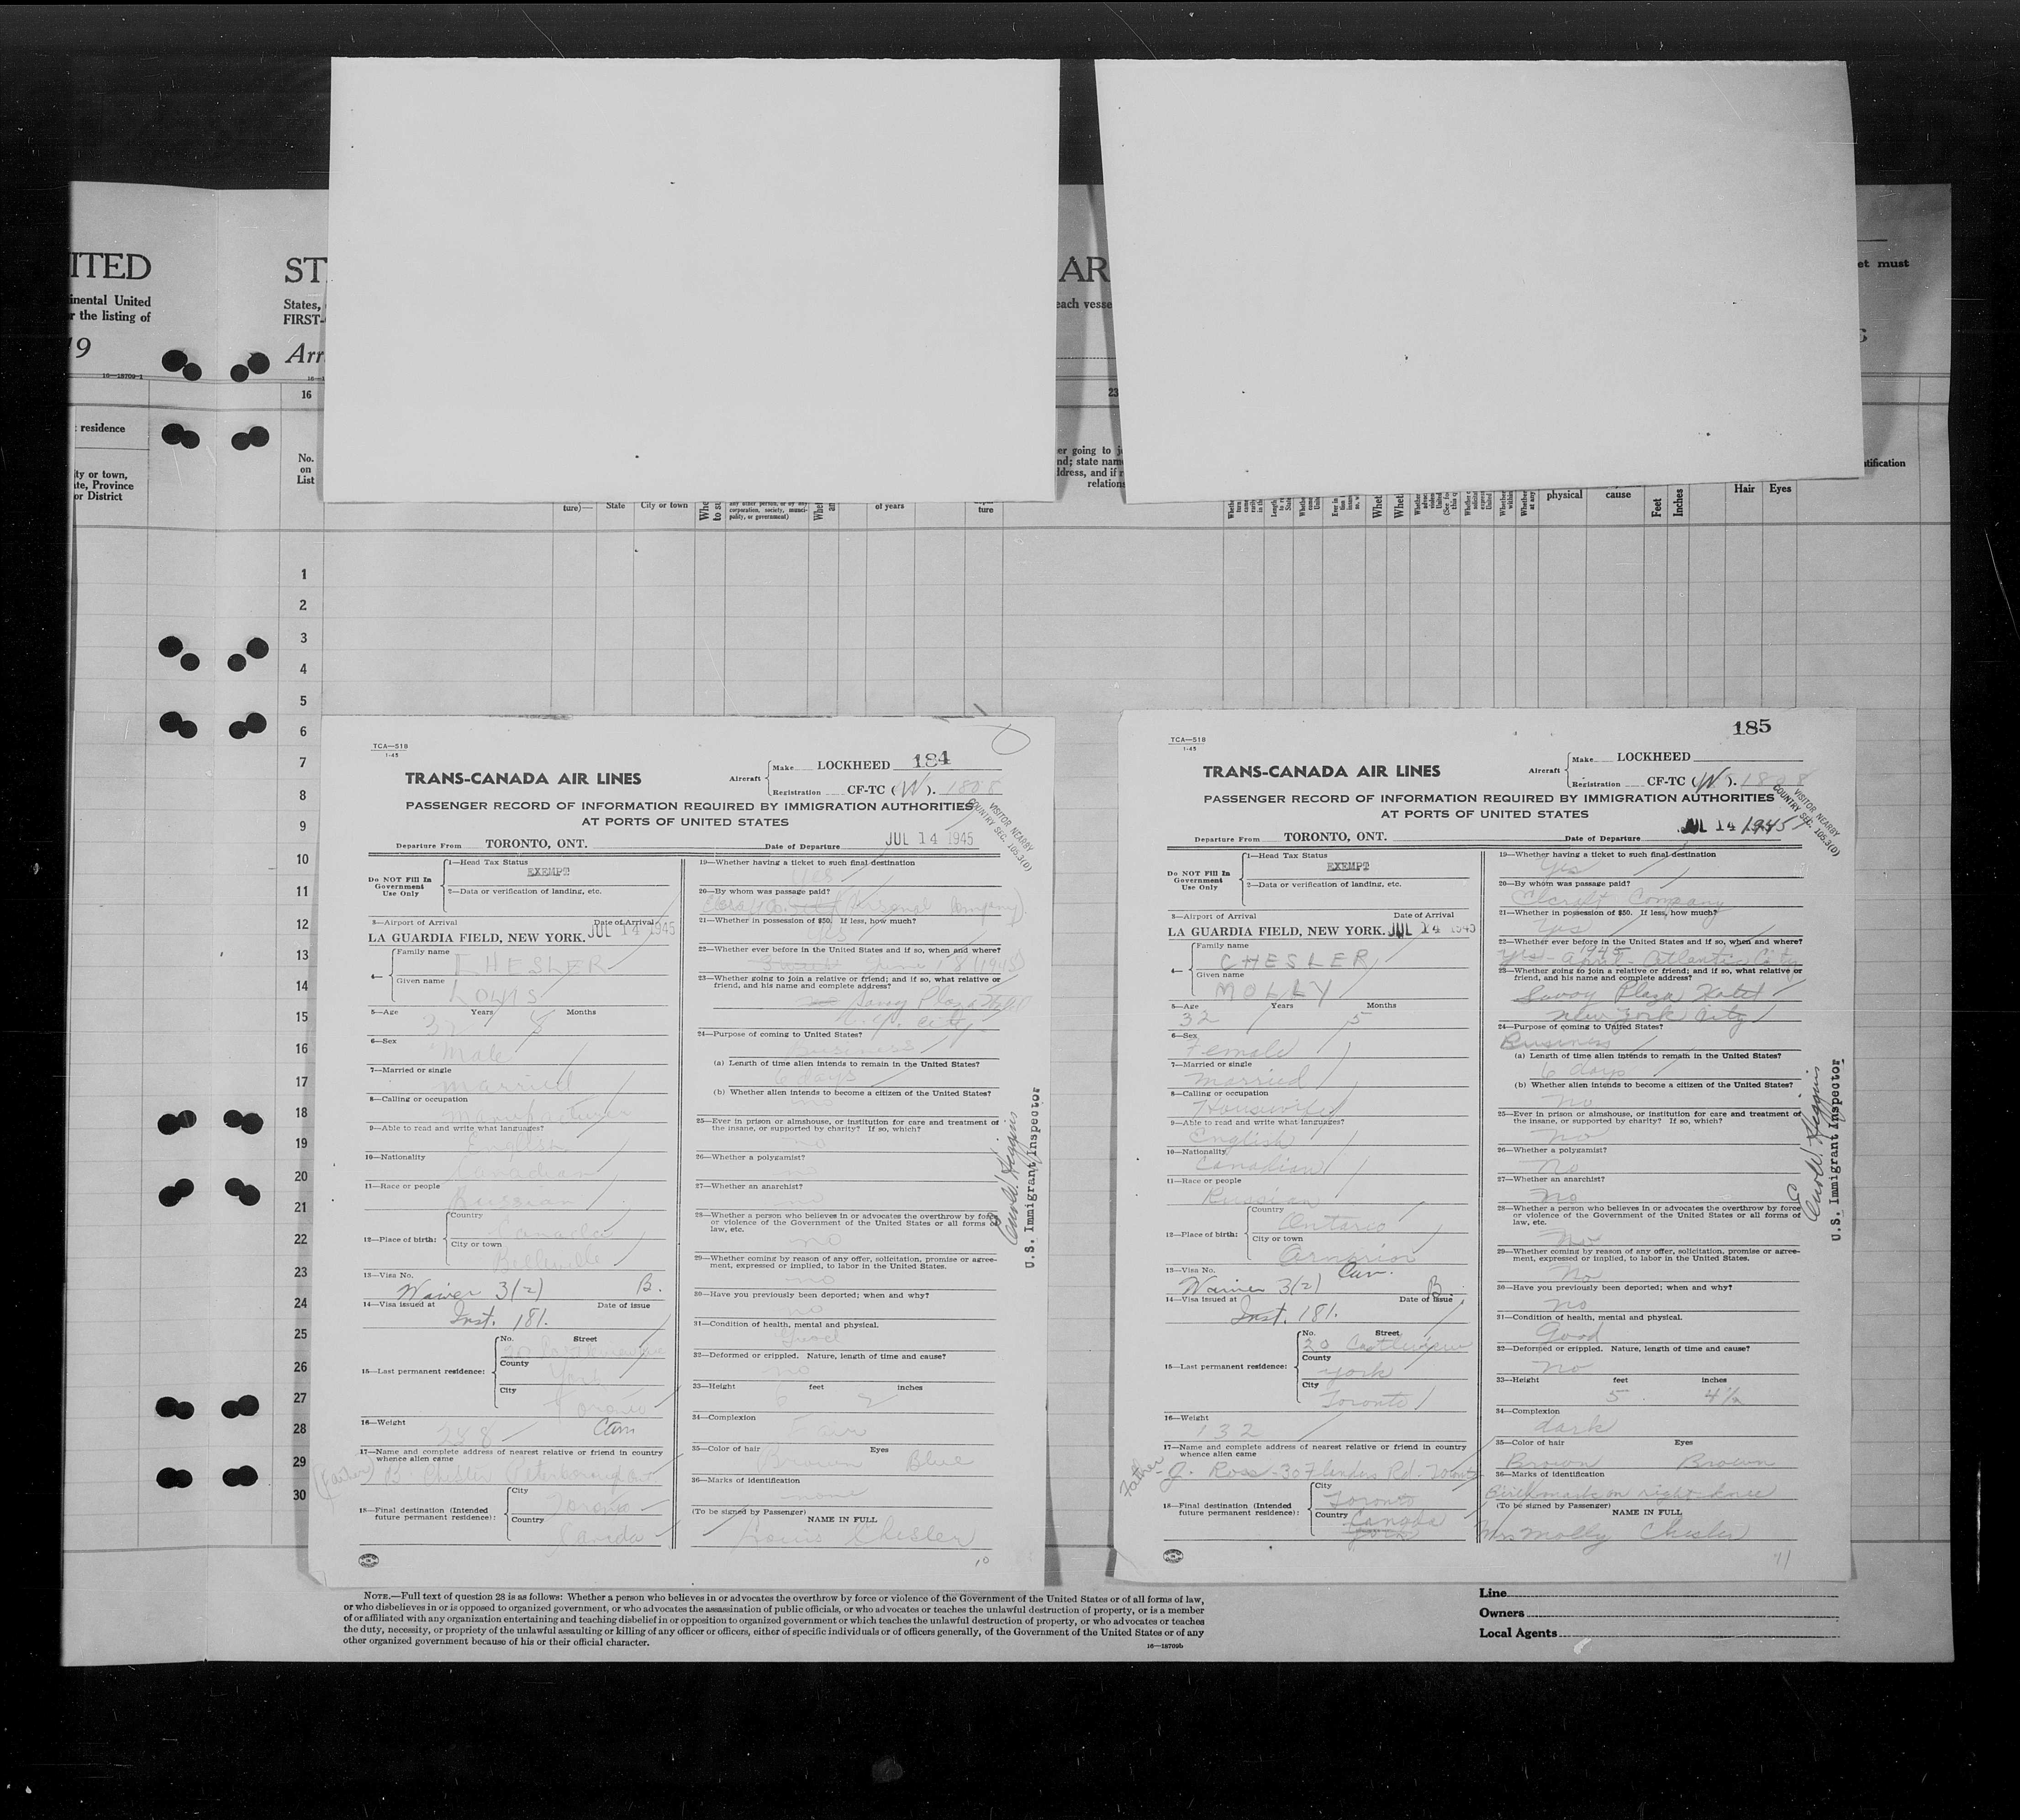 ITED
inental United
r the listing of
19
16—18709-1
: residence
ity or town,
te, Province
or District
ST
States,
FIRST-
Arr
16
No.
on
List
AR
each vesse
23
er going to j
nd; state nam
ddress, and if r
relations
et must
S
tification
ture)—
State
City or town
any other person, or by any
corporation, society, munici-
pality, or government)
of years
ture
physical
cause
Feet
Inches
Hair
Eyes
1
2
3
4
5
6
7
8
9
10
11
12
13
14
15
16
17
18
19
20
21
22
23
24
25
26
27
28
29
30
TCA—518
1-45
TRANS-CANADA AIR LINES
Aircraft
Make LOCKHEED 184
Registration CF-TC (W). 1808
PASSENGER RECORD OF INFORMATION REQUIRED BY IMMIGRATION AUTHORITIES
AT PORTS OF UNITED STATES
VISITOR NEARBY
COUNTRY SEC. 105.3(D)
Departure From TORONTO, ONT. Date of Departure JUL 14 1945
Do NOT Fill In
Government
Use Only
1—Head Tax Status
EXEMPT
2—Data or verification of landing, etc.
3—Airport of Arrival Date of Arrival
LA GUARDIA FIELD, NEW YORK. JUL 14 1945
4—
Family name
CHESLER
Given name
LOUIS
5—Age Years Months
32 8
6—Sex
Male
7—Married or single
married
8—Calling or occupation
Manufacturer
9—Able to read and write what languages?
English
10—Nationality
Canadian
11—Race or people
Russian
12—Place of birth:
Country
Canada
City or town
Belleville
13—Visa No.
Waiver 3(2) B.
14—Visa issued at Date of issue
Inst. 181.
15—Last permanent residence:
No. Street
20 Castleview
County
York
City
Toronto
16—Weight
288 Can
17—Name and complete address of nearest relative or friend in country
whence alien came
(Father) B. Chesler Peterborough Ont
18—Final destination (Intended
future permanent residence):
City
Toronto
Country
Canada
19—Whether having a ticket to such final destination
Yes
20—By whom was passage paid?
Personal Company).
21—Whether in possession of $50. If less, how much?
yes
22—Whether ever before in the United States and if so, when and where?
June 18 (1945)
23—Whether going to join a relative or friend; and if so, what relative or
friend, and his name and complete address?
Savoy Plaza Hotel
N.Y. City
24—Purpose of coming to United States?
business
(a) Length of time alien intends to remain in the United States?
6 days
(b) Whether alien intends to become a citizen of the United States?
no
25—Ever in prison or almshouse, or institution for care and treatment of
the insane, or supported by charity? If so, which?
no
26—Whether a polygamist?
no
27—Whether an anarchist?
no
28—Whether a person who believes in or advocates the overthrow by force
or violence of the Government of the United States or all forms of
law, etc.
no
29—Whether coming by reason of any offer, solicitation, promise or agree-
ment, expressed or implied, to labor in the United States.
no
30—Have you previously been deported; when and why?
no
31—Condition of health, mental and physical.
Good
32—Deformed or crippled. Nature, length of time and cause?
no
33—Height feet inches
6 2
34—Complexion
Fair
35—Color of hair Eyes
Brown Blue
36—Marks of identification
none
(To be signed by Passenger)
NAME IN FULL
Louis Chesler
10
U.S. Immigrant Inspector
185
TCA—518
1-45
TRANS-CANADA AIR LINES
Aircraft
Make LOCKHEED
Registration CF-TC (W). 1808
PASSENGER RECORD OF INFORMATION REQUIRED BY IMMIGRATION AUTHORITIES
AT PORTS OF UNITED STATES
VISITOR NEARBY
COUNTRY SEC. 105.3(D)
Departure From TORONTO, ONT. Date of Departure JUL 14 1945
Do NOT Fill In
Government
Use Only
1—Head Tax Status
EXEMPT
2—Data or verification of landing, etc.
3—Airport of Arrival Date of Arrival
LA GUARDIA FIELD, NEW YORK. JUL 14 1945
4—
Family name
CHESLER
Given name
MOLLY
5—Age Years Months
32 5
6—Sex
Female
7—Married or single
Married
8—Calling or occupation
Housewife
9—Able to read and write what languages?
English
10—Nationality
Canadian
11—Race or people
Russian
12—Place of birth:
Country
Ontario
City or town
Arnprior
13—Visa No. Can.
Waiver 3(2) B.
14—Visa issued at Date of issue
Inst. 181.
15—Last permanent residence:
No. Street
20 Castleview
County
York
City
Toronto
16—Weight
132
17—Name and complete address of nearest relative or friend in country
whence alien came
Father J. Ross - 30 Flanders Rd. Toronto
18—Final destination (Intended
future permanent residence):
City
Toronto
Country
Canada
York
19—Whether having a ticket to such final destination
Yes
20—By whom was passage paid?
Elcraft Company
21—Whether in possession of $50. If less, how much?
Yes
22—Whether ever before in the United States and if so, when and where?
1945
Yes - April - Atlantic City
23—Whether going to join a relative or friend; and if so, what relative or
friend, and his name and complete address?
Savoy Plaza Hotel
New York City
24—Purpose of coming to United States?
Business
(a) Length of time alien intends to remain in the United States?
6 days
(b) Whether alien intends to become a citizen of the United States?
No
25—Ever in prison or almshouse, or institution for care and treatment of
the insane, or supported by charity? If so, which?
No
26—Whether a polygamist?
No
27—Whether an anarchist?
No
28—Whether a person who believes in or advocates the overthrow by force
or violence of the Government of the United States or all forms of
law, etc.
No
29—Whether coming by reason of any offer, solicitation, promise or agree-
ment, expressed or implied, to labor in the United States.
No
30—Have you previously been deported; when and why?
No
31—Condition of health, mental and physical.
Good
32—Deformed or crippled. Nature, length of time and cause?
No
33—Height feet inches
5 4½
34—Complexion
dark
35—Color of hair Eyes
Brown Brown
36—Marks of identification
Birthmark on right knee
(To be signed by Passenger)
NAME IN FULL
Mrs Molly Chesler
11
U.S. Immigrant Inspector
NOTE.—Full text of question 28 is as follows: Whether a person who believes in or advocates the overthrow by force or violence of the Government of the United States or of all forms of law,
or who disbelieves in or is opposed to organized government, or who advocates the assassination of public officials, or who advocates or teaches the unlawful destruction of property, or is a member
of or affiliated with any organization entertaining and teaching disbelief in or opposition to organized government or which teaches the unlawful destruction of property, or who advocates or teaches
the duty, necessity, or propriety of the unlawful assaulting or killing of any officer or officers, either of specific individuals or of officers generally, of the Government of the United States or of any
other organized government because of his or their official character.
16—18709b
Line
Owners
Local Agents